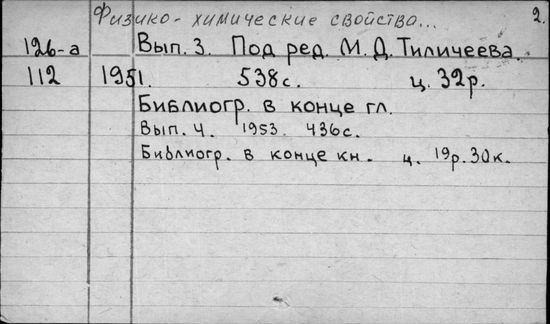 Физико-химические свойства... 2.
126-а Вып. 3. Под ред. М.Д. Тиличеева.
112 1951. 538 с. ц. 32 р.
Библиогр. в конце гл.
Вып. 4. 1953. 436 с.
Библиогр. в конце кн. ц. 19 р. 30 к.